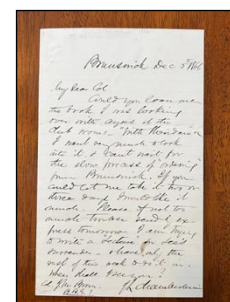 Brunswick Dec 3 18
My dear Col
Could you loan me
the book I was looking
over with at the
Club rooms. "With
I want very much to look
into it & can't wait for
the slow process of
from Brunswick. If you
could let me take it two or
three days
Please if not too
much trouble send by ex
press tomorrow. I am trying
to write a lecture on Lee's
surrender & have all the
rest of this week to
When shall I see you?
J L Chamberlain